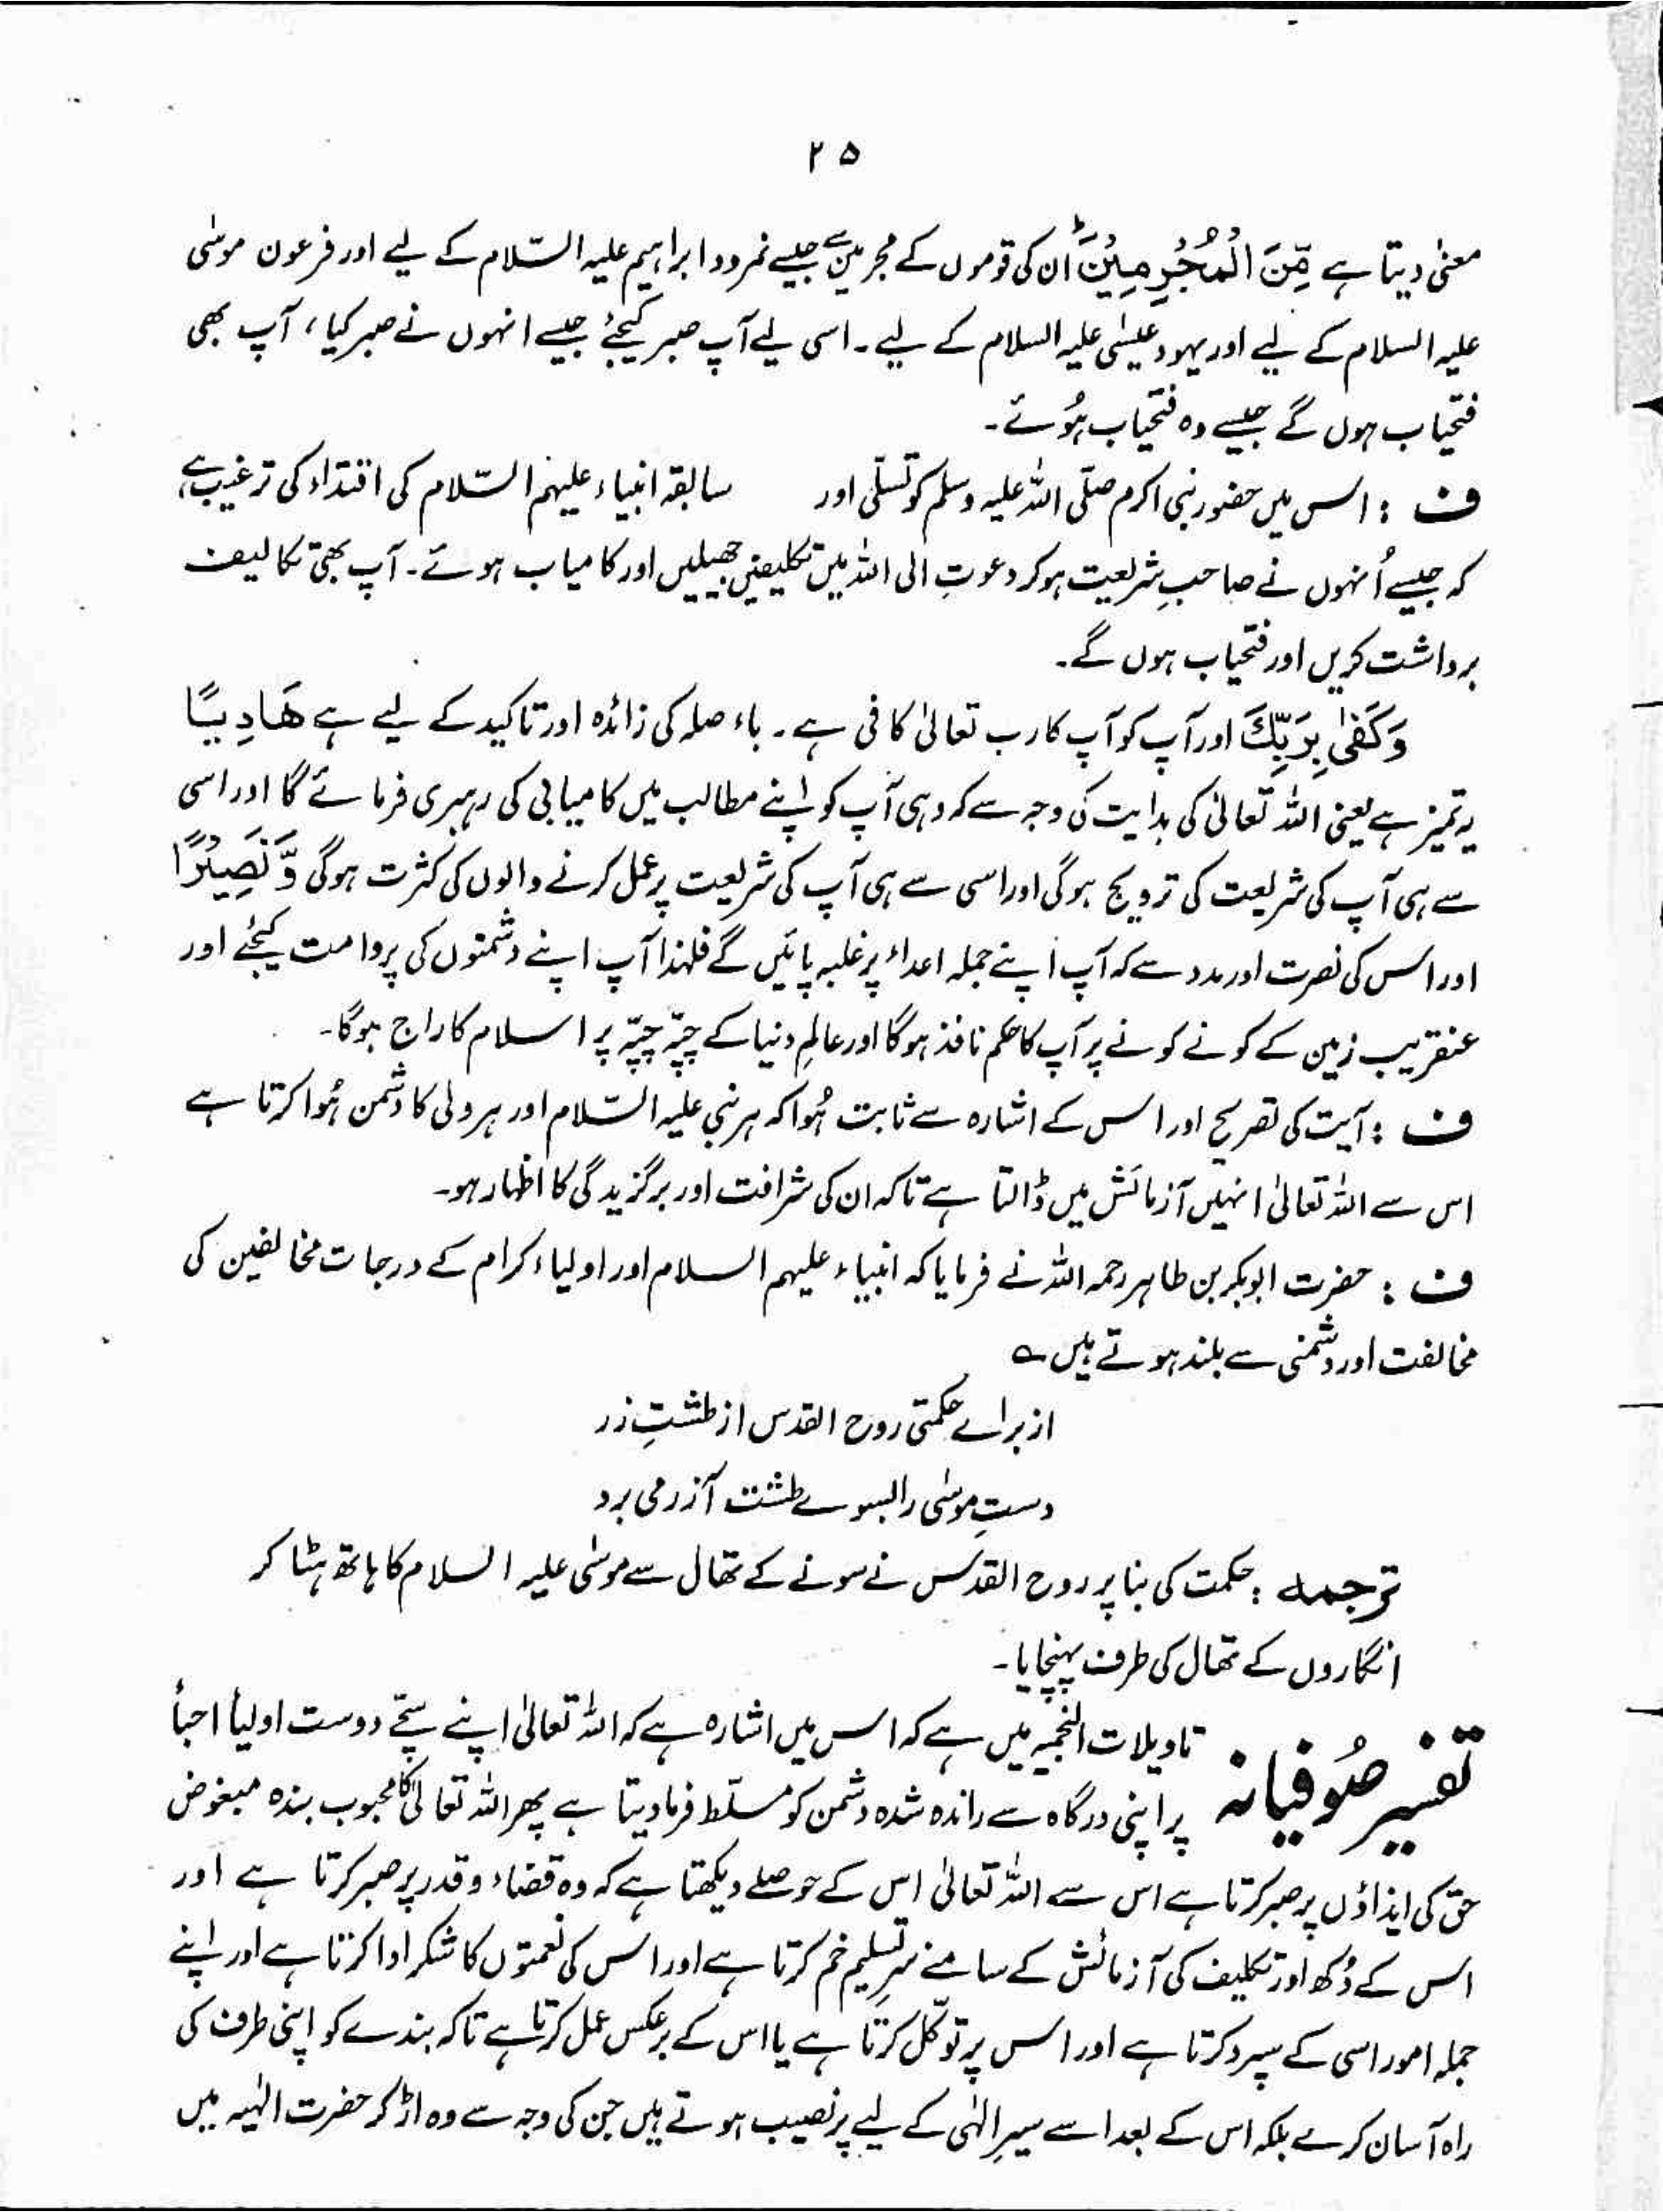 ۲۵
معنٰی دیتا ہے مِّنَ الْمُجْرِمِیْنَؕ ان کی قوموں کے مجرمین سے جیسے نمرود ابراہیم علیہ السّلام کے لیے اور فرعون موسٰی
علیہ السلام کے لیے اور یہود عیسٰی علیہ السلام کے لیے۔ اسی لیے آپ صبر کیجئے جیسے انہوں نے صبر کیا، آپ بھی
فتحیاب ہوں گے جیسے وہ فتحیاب ہُوئے۔
ف : اس میں حضور نبی اکرم صلّی اللہ علیہ وسلم کو تسلّی اور سابقہ انبیاء علیہم السّلام کی اقتداء کی ترغیب ہے
کہ جیسے اُنہوں نے صاحبِ شریعت ہوکر دعوتِ الی اللہ میں تکلیفیں جھیلیں اور کامیاب ہوئے۔ آپ بھی تکالیف
برداشت کریں اور فتحیاب ہوں گے۔
وَكَفٰى بِرَبِّكَ اور آپ کو آپ کا رب تعالیٰ کافی ہے۔ باء صلہ کی زائدہ اور تاکید کے لیے ہے هَادِيًا
یہ تمیز ہے یعنی اللہ تعالیٰ کی ہدایت کی وجہ سے کہ وہی آپ کو اپنے مطالب میں کامیابی کی رہبری فرمائے گا اور اسی
سے ہی آپ کی شریعت کی ترویج ہوگی اور اسی سے ہی آپ کی شریعت پر عمل کرنے والوں کی کثرت ہوگی وَّنَصِيْرًا
اور اس کی نصرت اور مدد سے کہ آپ اپنے جملہ اعداء پر غلبہ پائیں گے فلہٰذا آپ اپنے دشمنوں کی پروا مت کیجئے اور
عنقریب زمین کے کونے کونے پر آپ کا حکم نافذ ہوگا اور عالمِ دنیا کے چپّہ چپّہ پر اسلام کا راج ہوگا۔
ف : آیت کی تصریح اور اس کے اشارہ سے ثابت ہُوا کہ ہر نبی علیہ السّلام اور ہر ولی کا دشمن ہُوا کرتا ہے
اس سے اللہ تعالیٰ انہیں آزمائش میں ڈالتا ہے تاکہ ان کی شرافت اور برگزیدگی کا اظہار ہو۔
ف : حضرت ابوبکر بن طاہر رحمہ اللہ نے فرمایا کہ انبیاء علیہم السلام اور اولیاء کرام کے درجات مخالفین کی
مخالفت اور دشمنی سے بلند ہوتے ہیں ؎
از براے حکمتی روح القدس از طشتِ زر
دستِ موسٰی را بسوے طشت آذر می برد
ترجمہ : حکمت کی بنا پر روح القدس نے سونے کے تھال سے موسٰی علیہ السلام کا ہاتھ ہٹا کر
انگاروں کے تھال کی طرف پہنچایا۔
تفسیر صُوفیانہ تاویلات النجمیہ میں ہے کہ اس میں اشارہ ہے کہ اللہ تعالیٰ اپنے سچّے دوست اولیأ احبأ
پر اپنی درگاہ سے راندہ شدہ دشمن کو مسلّط فرمادیتا ہے پھر اللہ تعالیٰ کا محبوب بندہ مبغوض
حق کی ایذاؤں پر صبر کرتا ہے اس سے اللہ تعالیٰ اس کے حوصلے دیکھتا ہے کہ وہ قضاء و قدر پر صبر کرتا ہے اور
اس کے دُکھ اور تکلیف کی آزمائش کے سامنے سرِ تسلیم خم کرتا ہے اور اس کی نعمتوں کا شکر ادا کرتا ہے اور اپنے
جملہ امور اسی کے سپرد کرتا ہے اور اس پر توکّل کرتا ہے یا اس کے برعکس عمل کرتا ہے تاکہ بندے کو اپنی طرف کی
راہ آسان کرے بلکہ اس کے بعد اسے سیرِ الٰہی کے لیے پر نصیب ہوتے ہیں جن کی وجہ سے وہ اڑ کر حضرت الٰہیہ میں